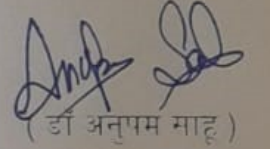 ( डॉ अनुपम साहू )